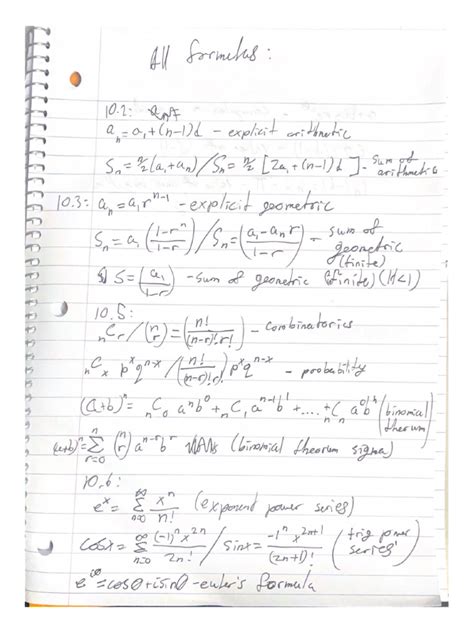 All formulas:
10.2:
a_n = a_1 + (n-1)d - explicit arithmetic
S_n = n/2 (a_1 + a_n) / S_n = n/2 [2a_1 + (n-1)d] - sum of arithmetic
10.3: a_n = a_1 r^(n-1) - explicit geometric
S_n = a_1 ((1-r^n)/(1-r)) / S_n = ((a_1 - a_n r)/(1-r)) - sum of geometric (finite)
S = (a_1/(1-r)) - sum of geometric (|r|<1)
10.5:
nCr / (n r) = (n!/((n-r)!r!)) - combinatorics
nCx p^x q^(n-x) / (n!/((n-r)!r!)) p^x q^(n-x) - probability
(a+b)^n = nC0 a^n b^0 + nC1 a^(n-1) b^1 + .... + nCn a^0 b^n (binomial therum)
(a+b)^n = Σ_(r=0)^n (n r) a^(n-r) b^r (binomial theorum sigma)
10.6:
e^x = Σ_(n=0)^∞ x^n/n! (exponend power series)
cosx = Σ_(n=0)^∞ (-1)^n x^(2n)/2n! / sinx = -1^n x^(2n+1)/(2n+1)! (trig power series)
e^(iθ) = cosθ + isinθ - euler's formula